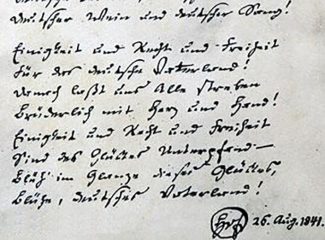 Deutscher Wein und deutscher Sang!
Einigkeit und Recht und Freiheit
Für das deutsche Vaterland!
Danach laßt uns Alle streben
Brüderlich mit Herz und Hand!
Einigkeit und Recht und Freiheit
Sind des Glückes Unterpfand –
Blüh' im Glanze dieses Glückes,
Blühe, deutsches Vaterland!
26. Aug. 1841.